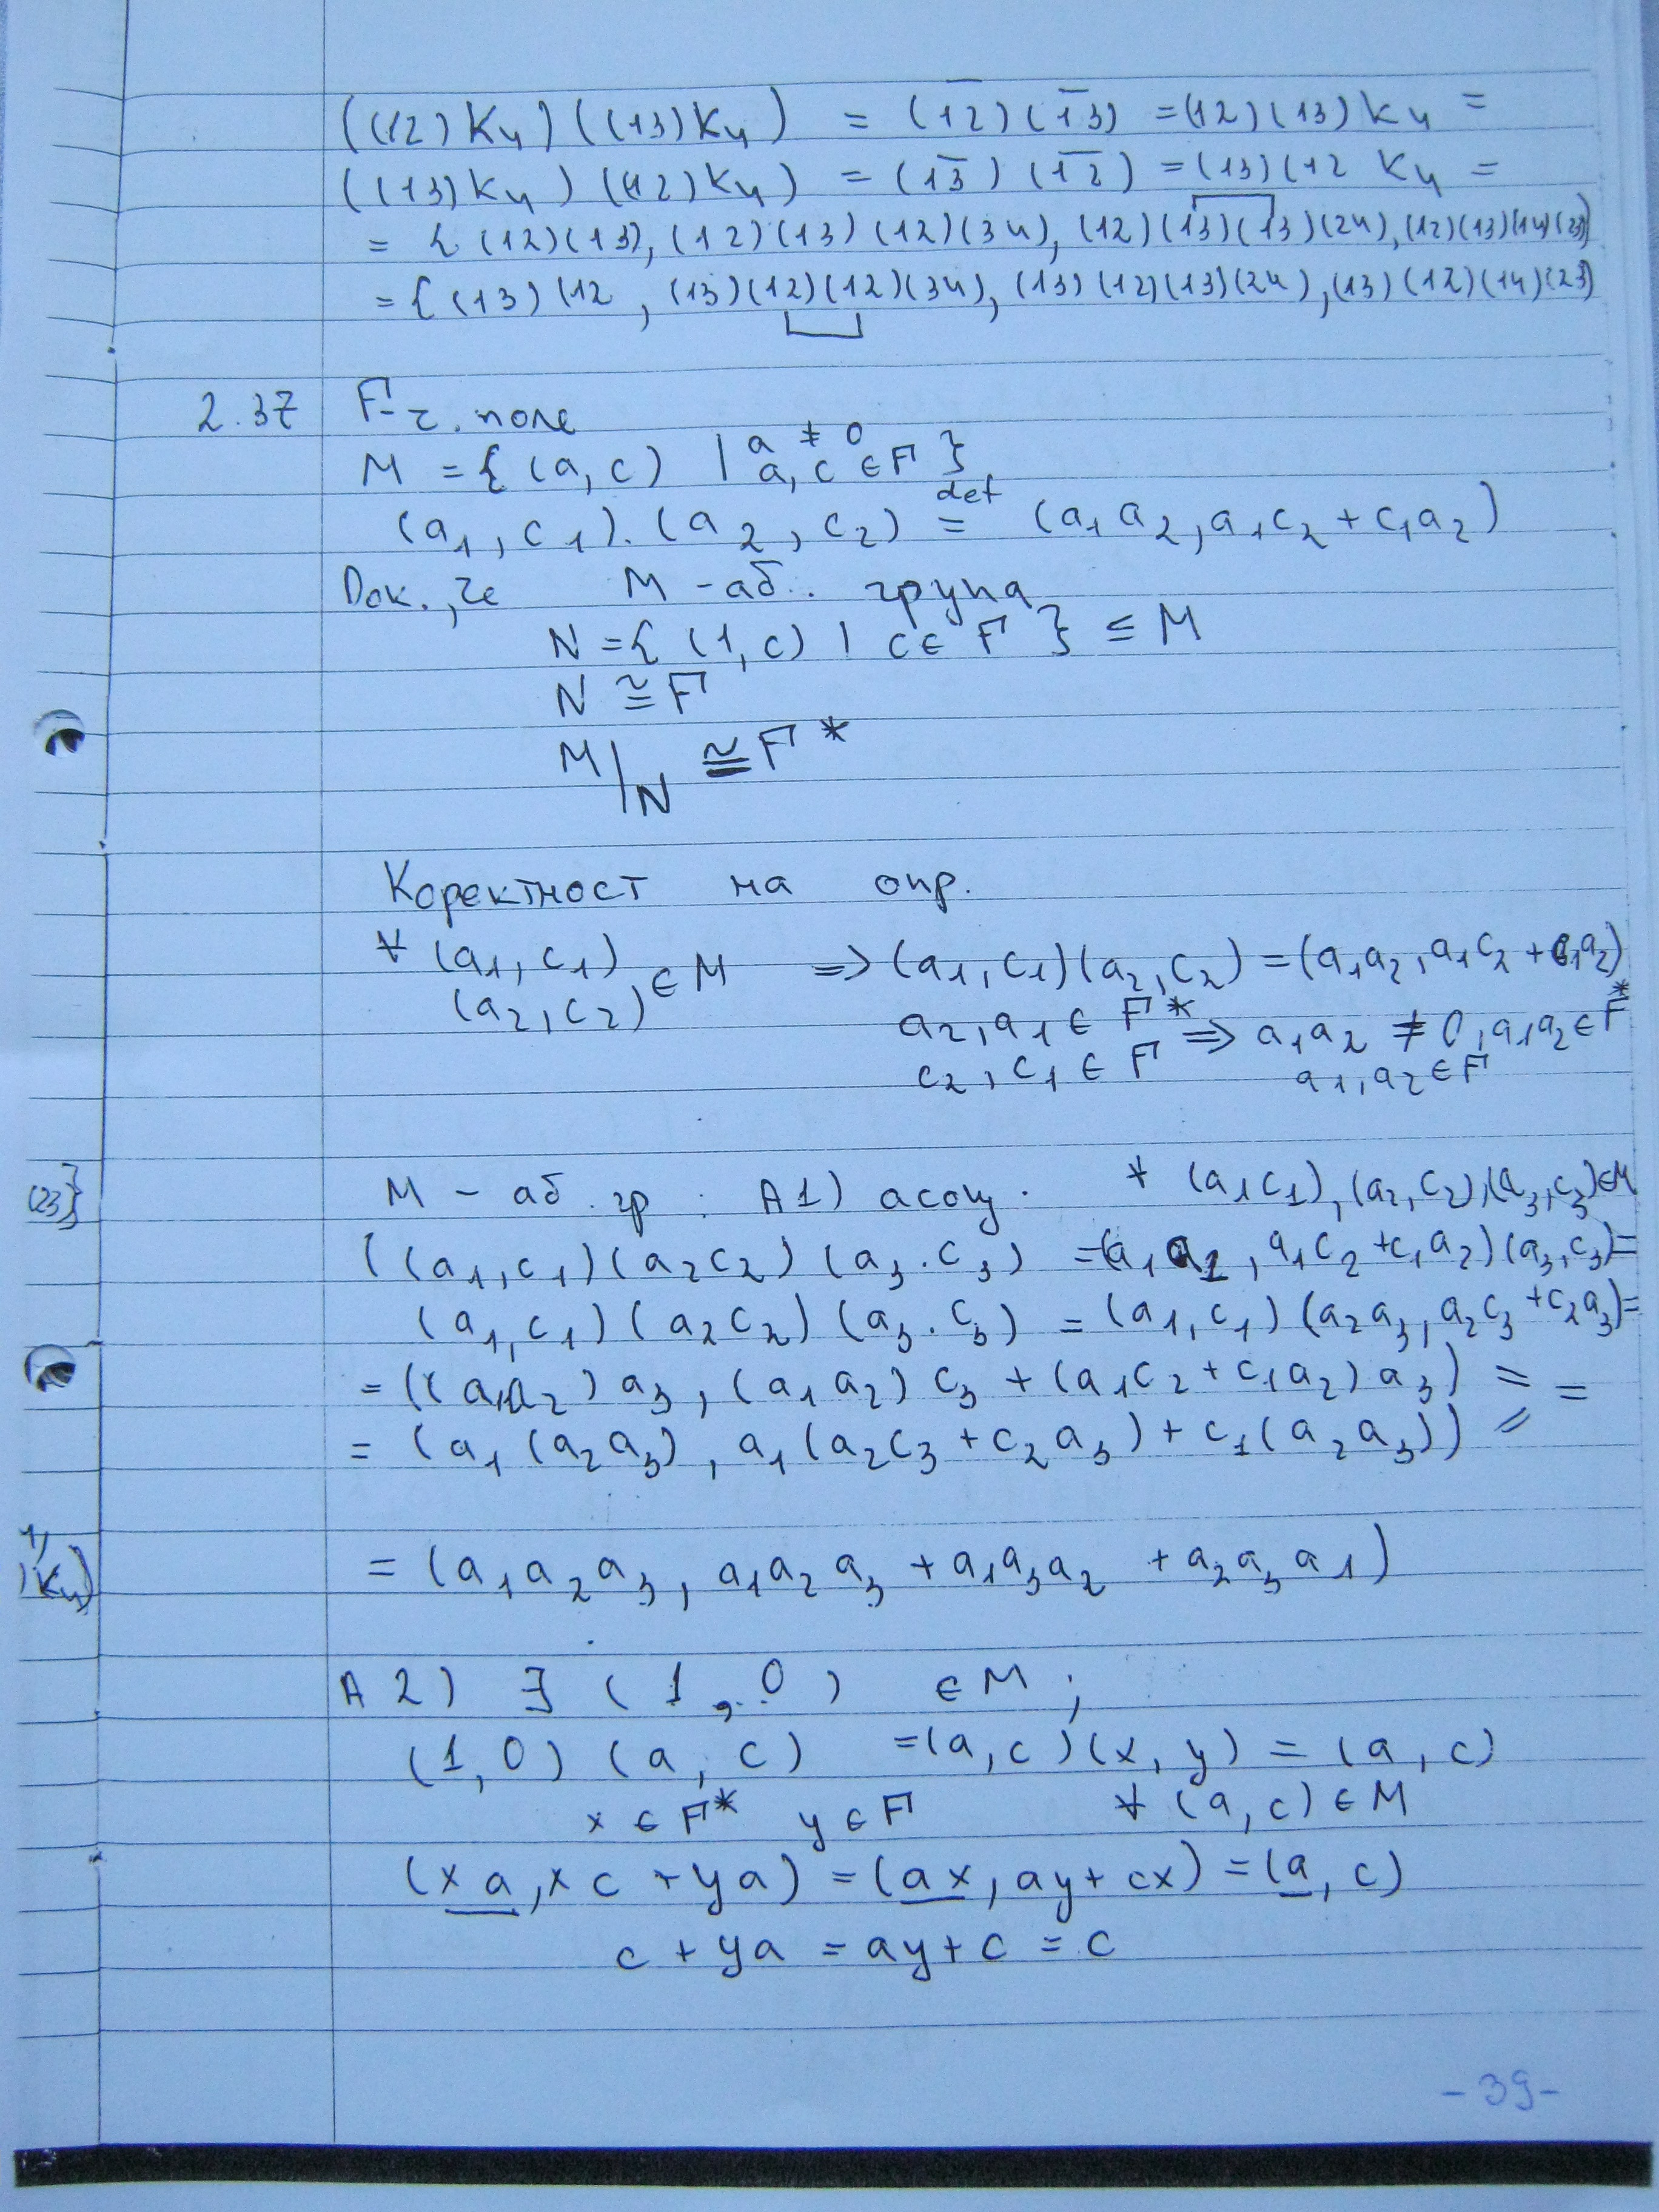 ((12)K₄)((13)K₄) = (1̅2̅)(1̅3̅) = (12)(13)K₄ =
((13)K₄)((12)K₄) = (1̅3̅)(1̅2̅) = (13)(12 K₄ =
= {(12)(13), (12)(13)(12)(34), (12)(13)(13)(24), (12)(13)(14)(23)
= {(13)(12 , (13)(12)(12)(34), (13)(12)(13)(24), (13)(12)(14)(23)
2.37 F - ч. поле
M = {(a, c) | a ≠ 0 a, c ∈ F}
(a₁, c₁).(a₂, c₂) def= (a₁a₂, a₁c₂ + c₁a₂)
Док., че M - аб. група
N = {(1, c) | c ∈ F} ≤ M
N ≅ F
M/N ≅ F*
Коректност на опр.
∀ (a₁, c₁) (a₂, c₂) ∈ M => (a₁, c₁)(a₂, c₂) = (a₁a₂, a₁c₂ + c₁a₂)
a₂, a₁ ∈ F* => a₁a₂ ≠ 0, a₁a₂ ∈ F*
c₂, c₁ ∈ F a₁, a₂ ∈ F
(23)}
M - аб. гр : A1) асоц. ∀ (a₁c₁), (a₂, c₂), (a₃, c₃) ∈ M
((a₁, c₁)(a₂c₂)(a₃.c₃) = (a₁a₂, a₁c₂ + c₁a₂)(a₃, c₃) =
(a₁, c₁)(a₂c₂)(a₃.c₃) = (a₁, c₁)(a₂a₃, a₂c₃ + c₂a₃) =
= ((a₁a₂)a₃, (a₁a₂)c₃ + (a₁c₂ + c₁a₂)a₃) = =
= (a₁(a₂a₃), a₁(a₂c₃ + c₂a₃) + c₁(a₂a₃)) =
K₄)
= (a₁a₂a₃, a₁a₂a₃ + a₁a₃a₂ + a₂a₃a₁)
A2) ∃ (1, 0) ∈ M ;
(1, 0) (a, c) = (a, c)(x, y) = (a, c)
x ∈ F* y ∈ F ∀ (a, c) ∈ M
(xa, xc + ya) = (ax, ay + cx) = (a, c)
c + ya = ay + c = c
- 39 -